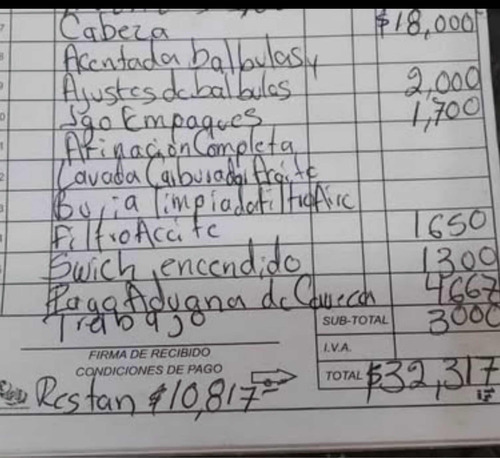 Cabeza $18,000
Acentada balbulas y
Ajustes de balbulas 2,000
Jgo Empaques 1,700
Afinación Completa
Lavada Carburador Aceite
Bujia limpiada filtro Airc
Filtro Accite 1650
Swich encendido 1300
Pago Aduana de 4667
Trabajo 3000
SUB-TOTAL
FIRMA DE RECIBIDO
I.V.A.
CONDICIONES DE PAGO
TOTAL $32,317
Restan $10,817